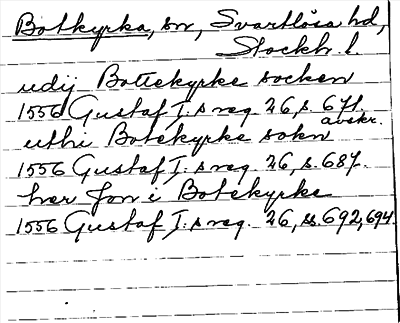 Botkyrka, sn, Svartlösa hd,
Stockh. l.
udij Bottekyrke socken
1556 Gustaf I:s reg. 26, s. 671
avskr.
uthi Botekyrke sokn
1556 Gustaf I:s reg. 26, s. 687.
her Jon i Botekyrke
1556 Gustaf I:s reg. 26, ss. 692, 694.